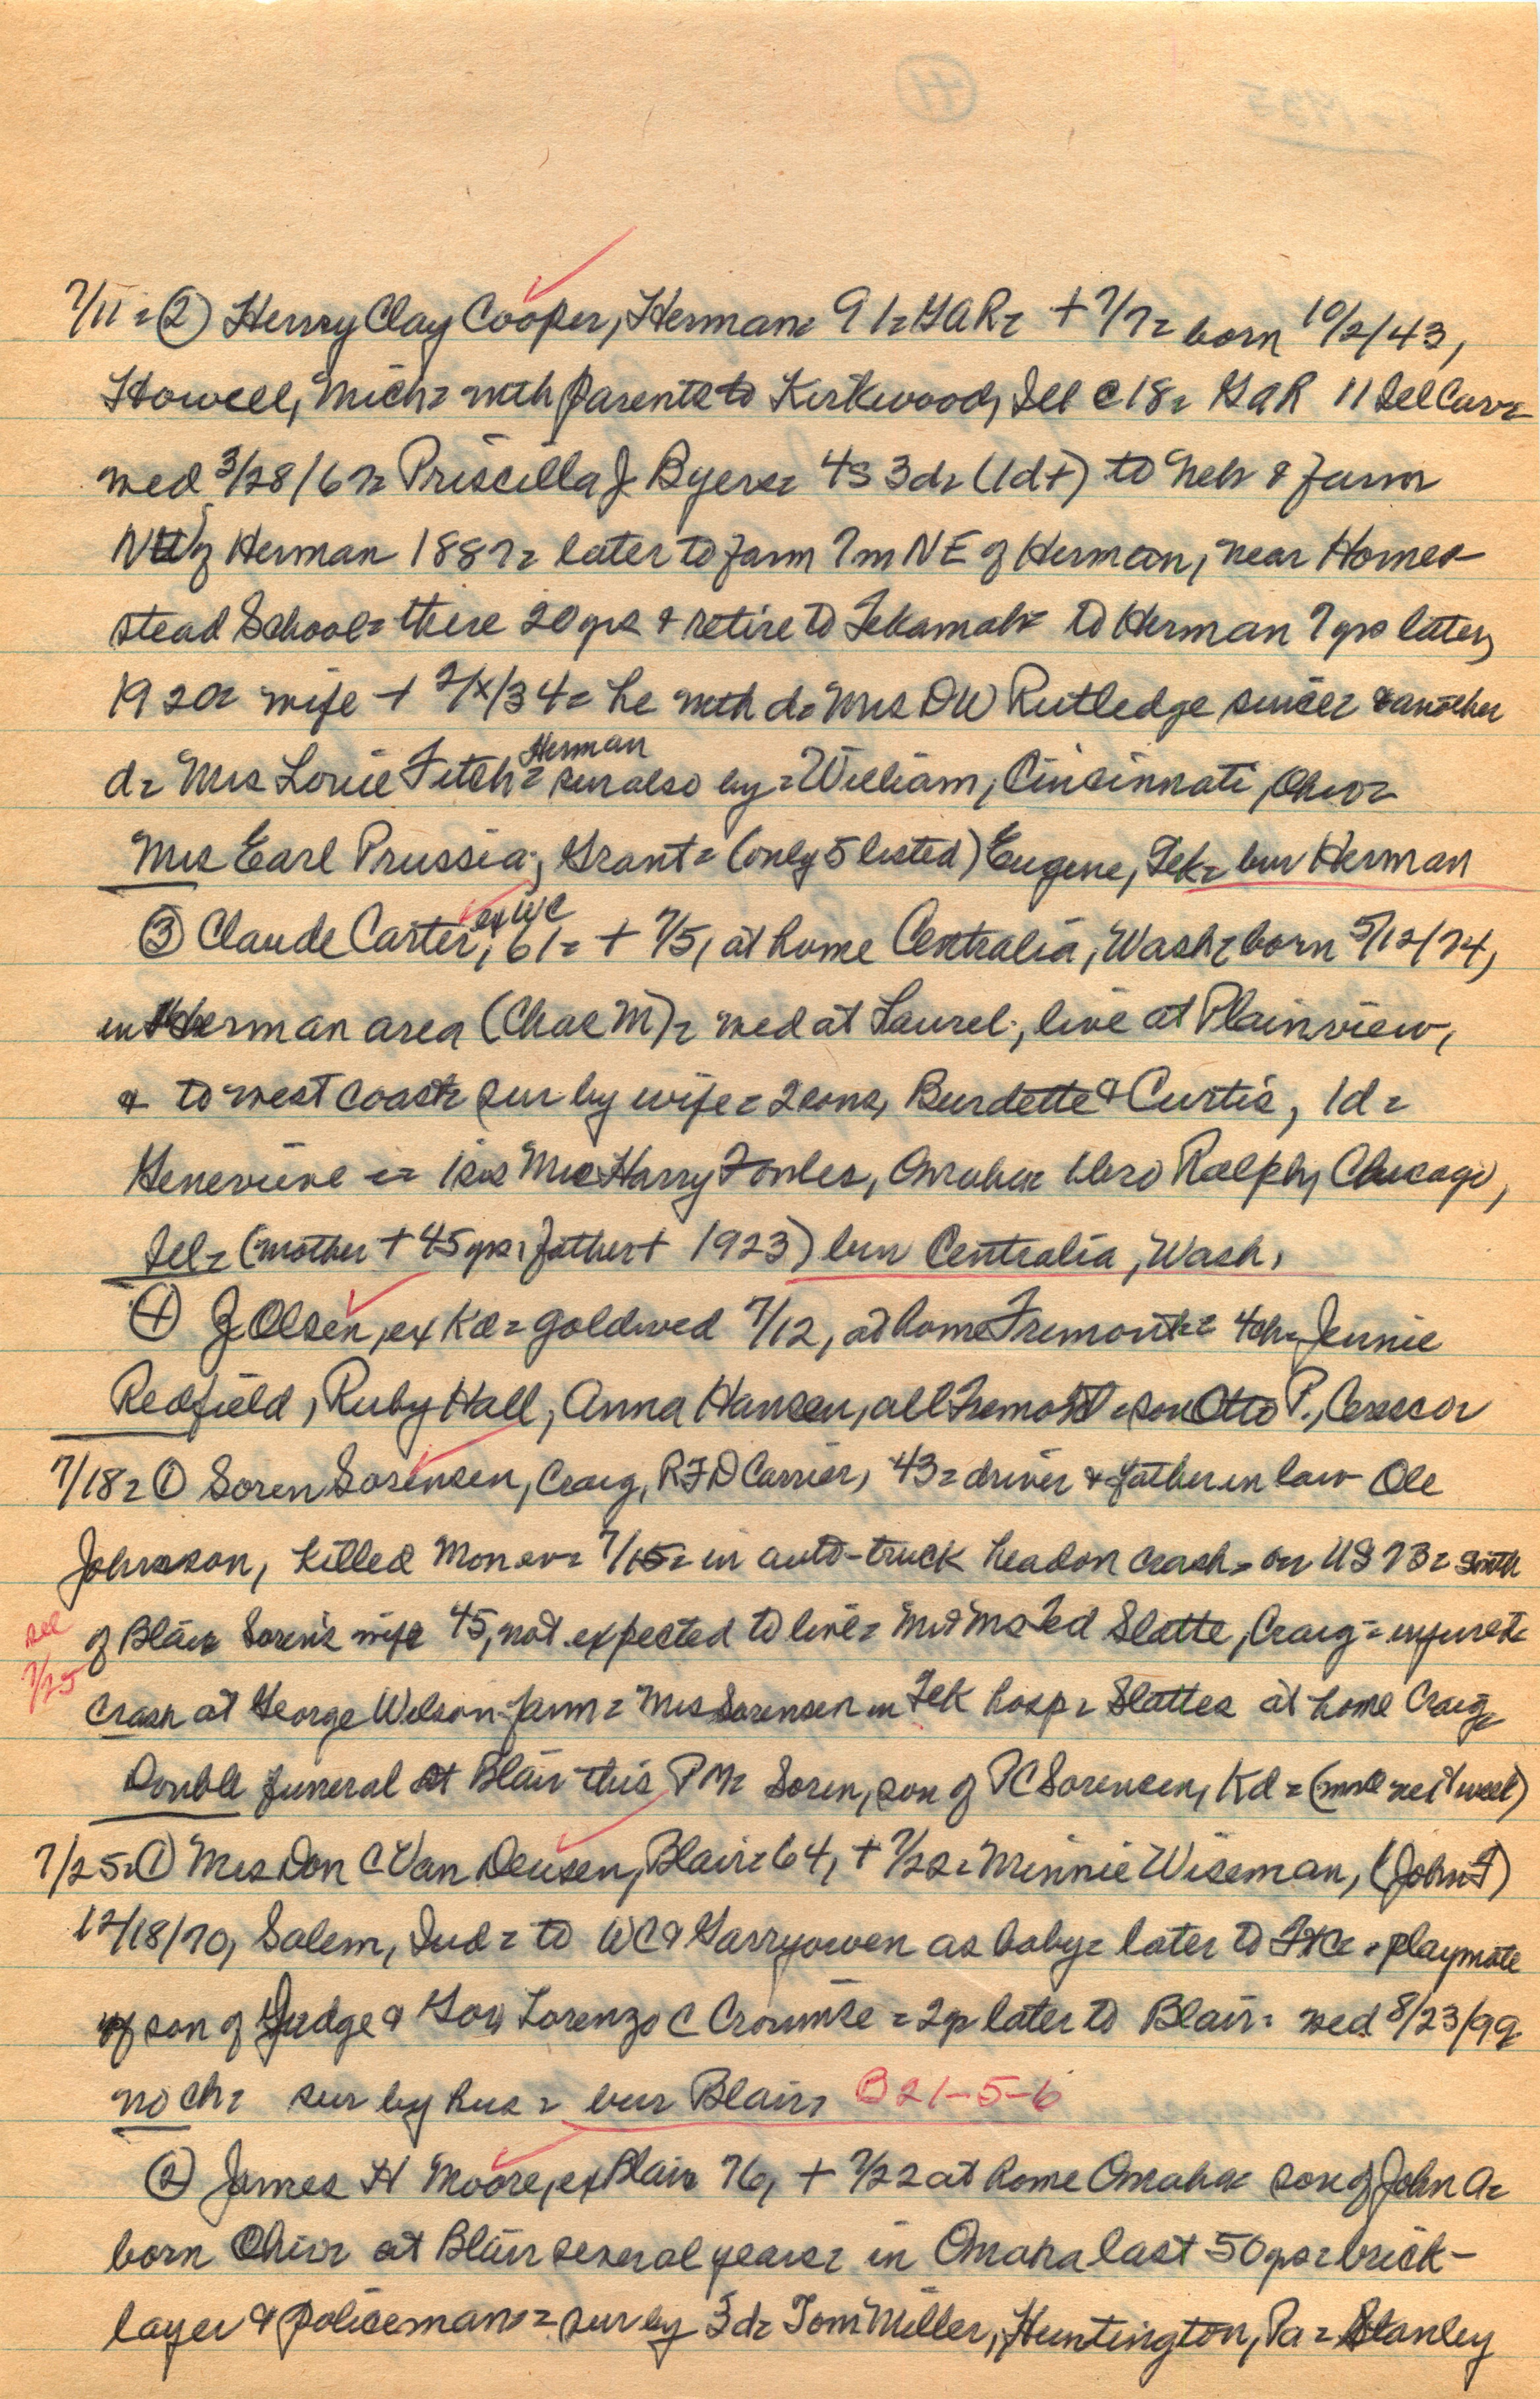 7/11 = (2) Henry Clay Cooper, Herman = 91 = GAR = + 7/7 = born 10/2/43,
Howell, Mich = with parents to Kirkwood, Ill c 18 = GAR 11 Ill Cav =
wed 3/28/67 = Priscilla J Byers = 4s 3d = (1d+) to Neb & farm
NW of Herman 1887 = later to farm 7m NE of Herman, near Home-
stead School = there 20 yrs & retire to Tekamah = to Herman 7 yrs later,
1920 = wife + 2/x/34 = he with d = Mrs DW Rutledge since = & another
d = Mrs Louie Fitch = Herman = sur also by = William, Cincinnati, Ohio =
Mrs Earl Prussia, Grant = (only 5 listed) Eugene, Tek = bur Herman
(3) Claude Carter, ex WC, 61 = + 7/5, at home Centralia, Wash = born 5/12/74,
in Herman area (Chas M) = wed at Laurel, live at Plainview,
& to west coast = sur by wife = 2 sons, Burdette & Curtis, 1d =
Genevieve = 1 sis Mrs Harry Fowles, Omaha = 1 bro Ralph, Chicago,
Ill = (mother + 45 yrs, father + 1923) bur Centralia, Wash.
(4) J Olsen, ex Kd = goldwed 7/12, at home Fremont = 4 ch = Jennie
Redfield, Ruby Hall, Anna Hansen, all Fremont = son Otto P., Ceresco
7/18 = (1) Soren Sorensen, Craig, RFD Carrier, 43 = driver & father in law Ole
Johnson, killed Mon ev = 7/15 = in auto-truck headon crash = on US 73 = south
of Blair = Soren's wife 45, not expected to live = Mr & Mrs Ted Slatte, Craig = injured =
see 7/25
crash at George Wilson farm = Mrs Sorensen in Tek hosp = Slattes at home Craig =
Double funeral at Blair this PM = Soren, son of PC Sorensen, Kd = (more next week)
7/25 = (1) Mrs Don C Van Deusen, Blair = 64, + 7/22 = Minnie Wiseman, (John F)
12/18/70, Salem, Ind = to WC & Garryowen as baby = later to FtC = playmate
of son of Judge & Gov Lorenzo C Crounse = 2 yr later to Blair = wed 8/23/99
no ch = sur by hus = bur Blair = B 21-5-6
(2) James H Moore, ex Blair 76, + 7/22 at home Omaha = son of John A =
born Ohio = at Blair several years = in Omaha last 50 yrs = brick-
layer & policeman = sur by 3d = Tom Miller, Huntington, Pa = Stanley